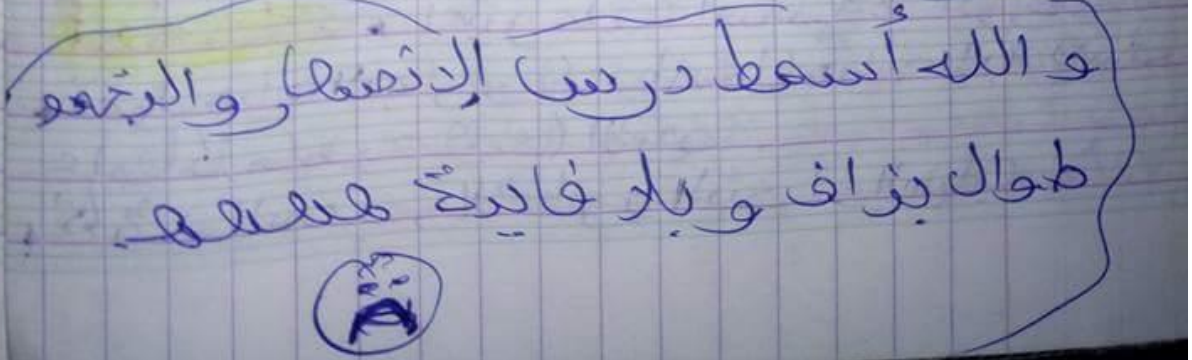 و الله أسمط درس الانضغا ر والتجمد
طوال بزاف و بلا فايدة ههههه